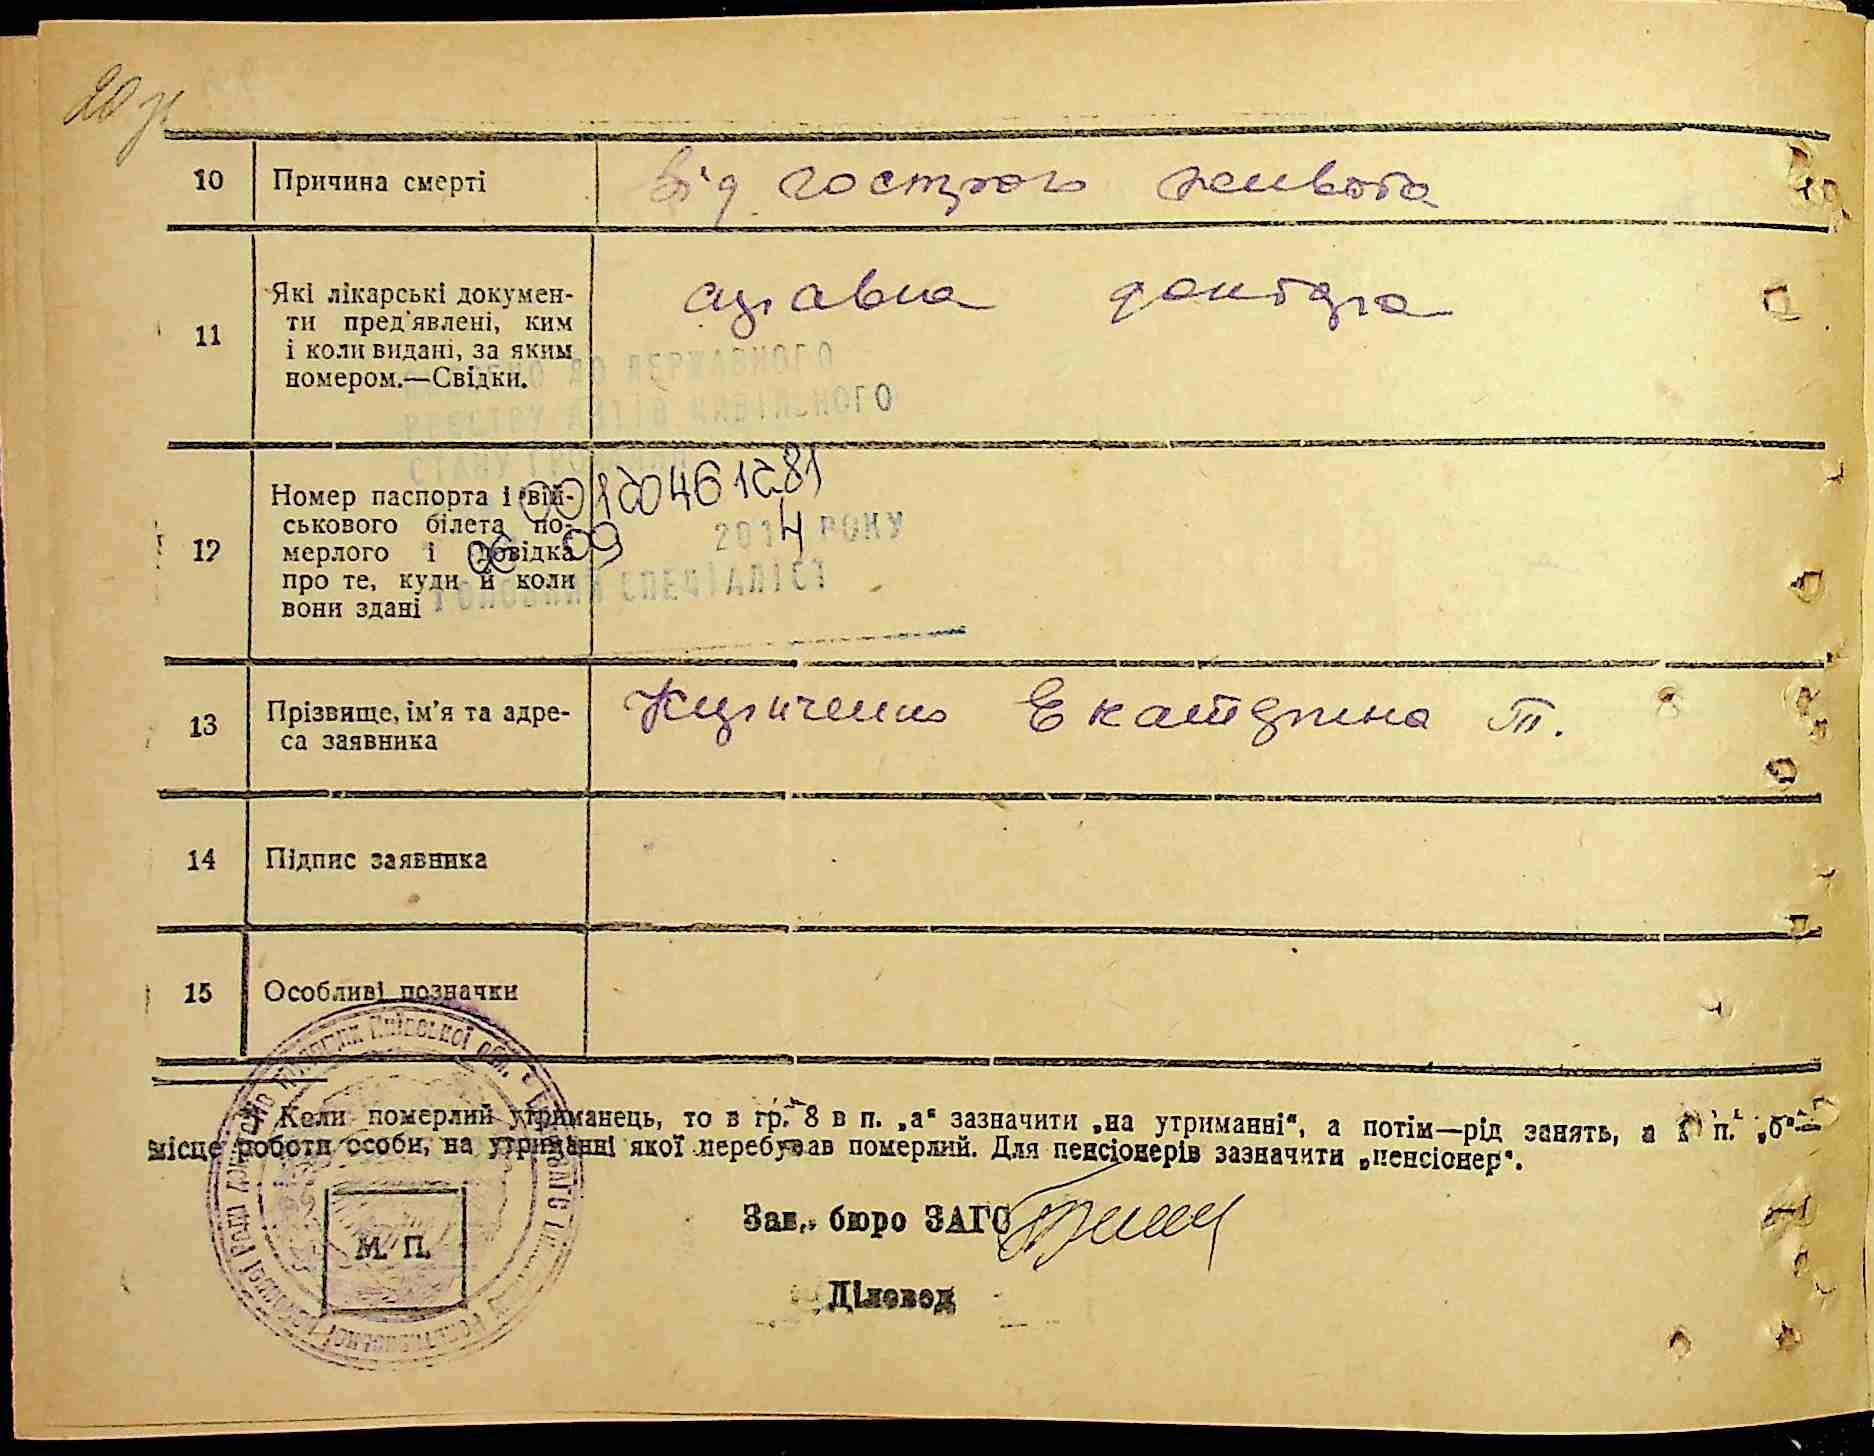 20
10 Причина смерті від гострого живота
11 Які лікарські докумен-
ти пред'явлені, ким
і коли видані, за яким
номером.—Свідки.
доктора
ДО ДЕРЖАВНОГО
РЕЄСТРУ АКТІВ ЦИВІЛЬНОГО
СТАНУ ГРОМАДЯН
00150461281
12 Номер паспорта і вій-
ськового білета по-
мерлого і довідка
про те, куди й коли
вони здані
06 09 2014 РОКУ
ГОЛОВНИЙ СПЕЦІАЛІСТ
13 Прізвище, ім'я та адре-
са заявника
Екатерина Т.
14 Підпис заявника
15 Особливі позначки
Коли померлий утриманець, то в гр. 8 в п. „а“ зазначити „на утриманні“, а потім—рід занять, а в п. „б“—
місце роботи особи, на утриманні якої перебував померлий. Для пенсіонерів зазначити „пенсіонер“.
Зав. бюро ЗАГС
М. П.
Діловод